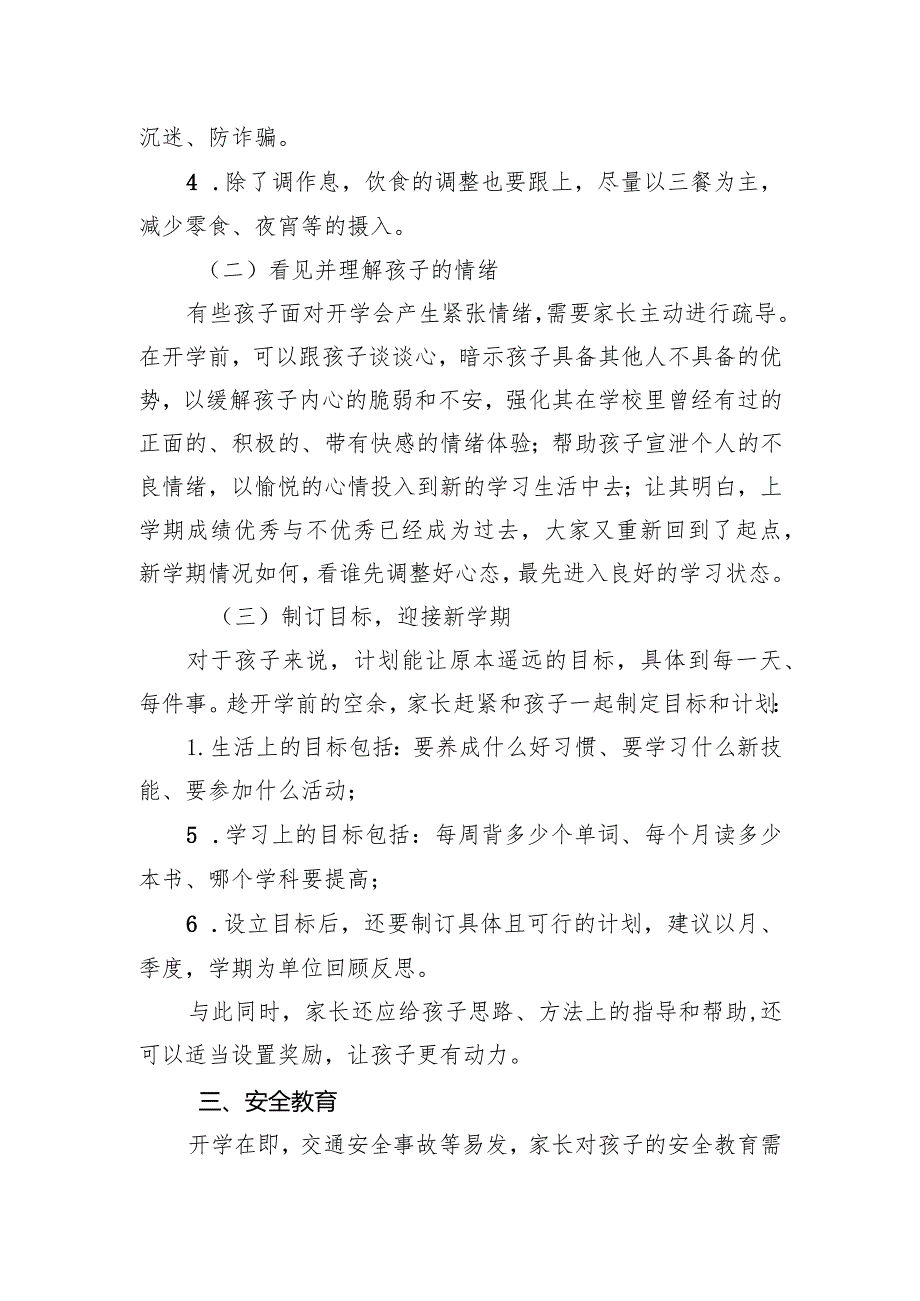 沉迷、防诈骗。
4 .除了调作息，饮食的调整也要跟上，尽量以三餐为主，
减少零食、夜宵等的摄入。
（二）看见并理解孩子的情绪
有些孩子面对开学会产生紧张情绪，需要家长主动进行疏导。
在开学前，可以跟孩子谈谈心，暗示孩子具备其他人不具备的优
势，以缓解孩子内心的脆弱和不安，强化其在学校里曾经有过的
正面的、积极的、带有快感的情绪体验；帮助孩子宣泄个人的不
良情绪，以愉悦的心情投入到新的学习生活中去；让其明白，上
学期成绩优秀与不优秀已经成为过去，大家又重新回到了起点，
新学期情况如何，看谁先调整好心态，最先进入良好的学习状态。
（三）制订目标，迎接新学期
对于孩子来说，计划能让原本遥远的目标，具体到每一天、
每件事。趁开学前的空余，家长赶紧和孩子一起制定目标和计划：
1.生活上的目标包括：要养成什么好习惯、要学习什么新技
能、要参加什么活动；
5 .学习上的目标包括：每周背多少个单词、每个月读多少
本书、哪个学科要提高；
6 .设立目标后，还要制订具体且可行的计划，建议以月、
季度，学期为单位回顾反思。
与此同时，家长还应给孩子思路、方法上的指导和帮助,还
可以适当设置奖励，让孩子更有动力。
三、安全教育
开学在即，交通安全事故等易发，家长对孩子的安全教育需